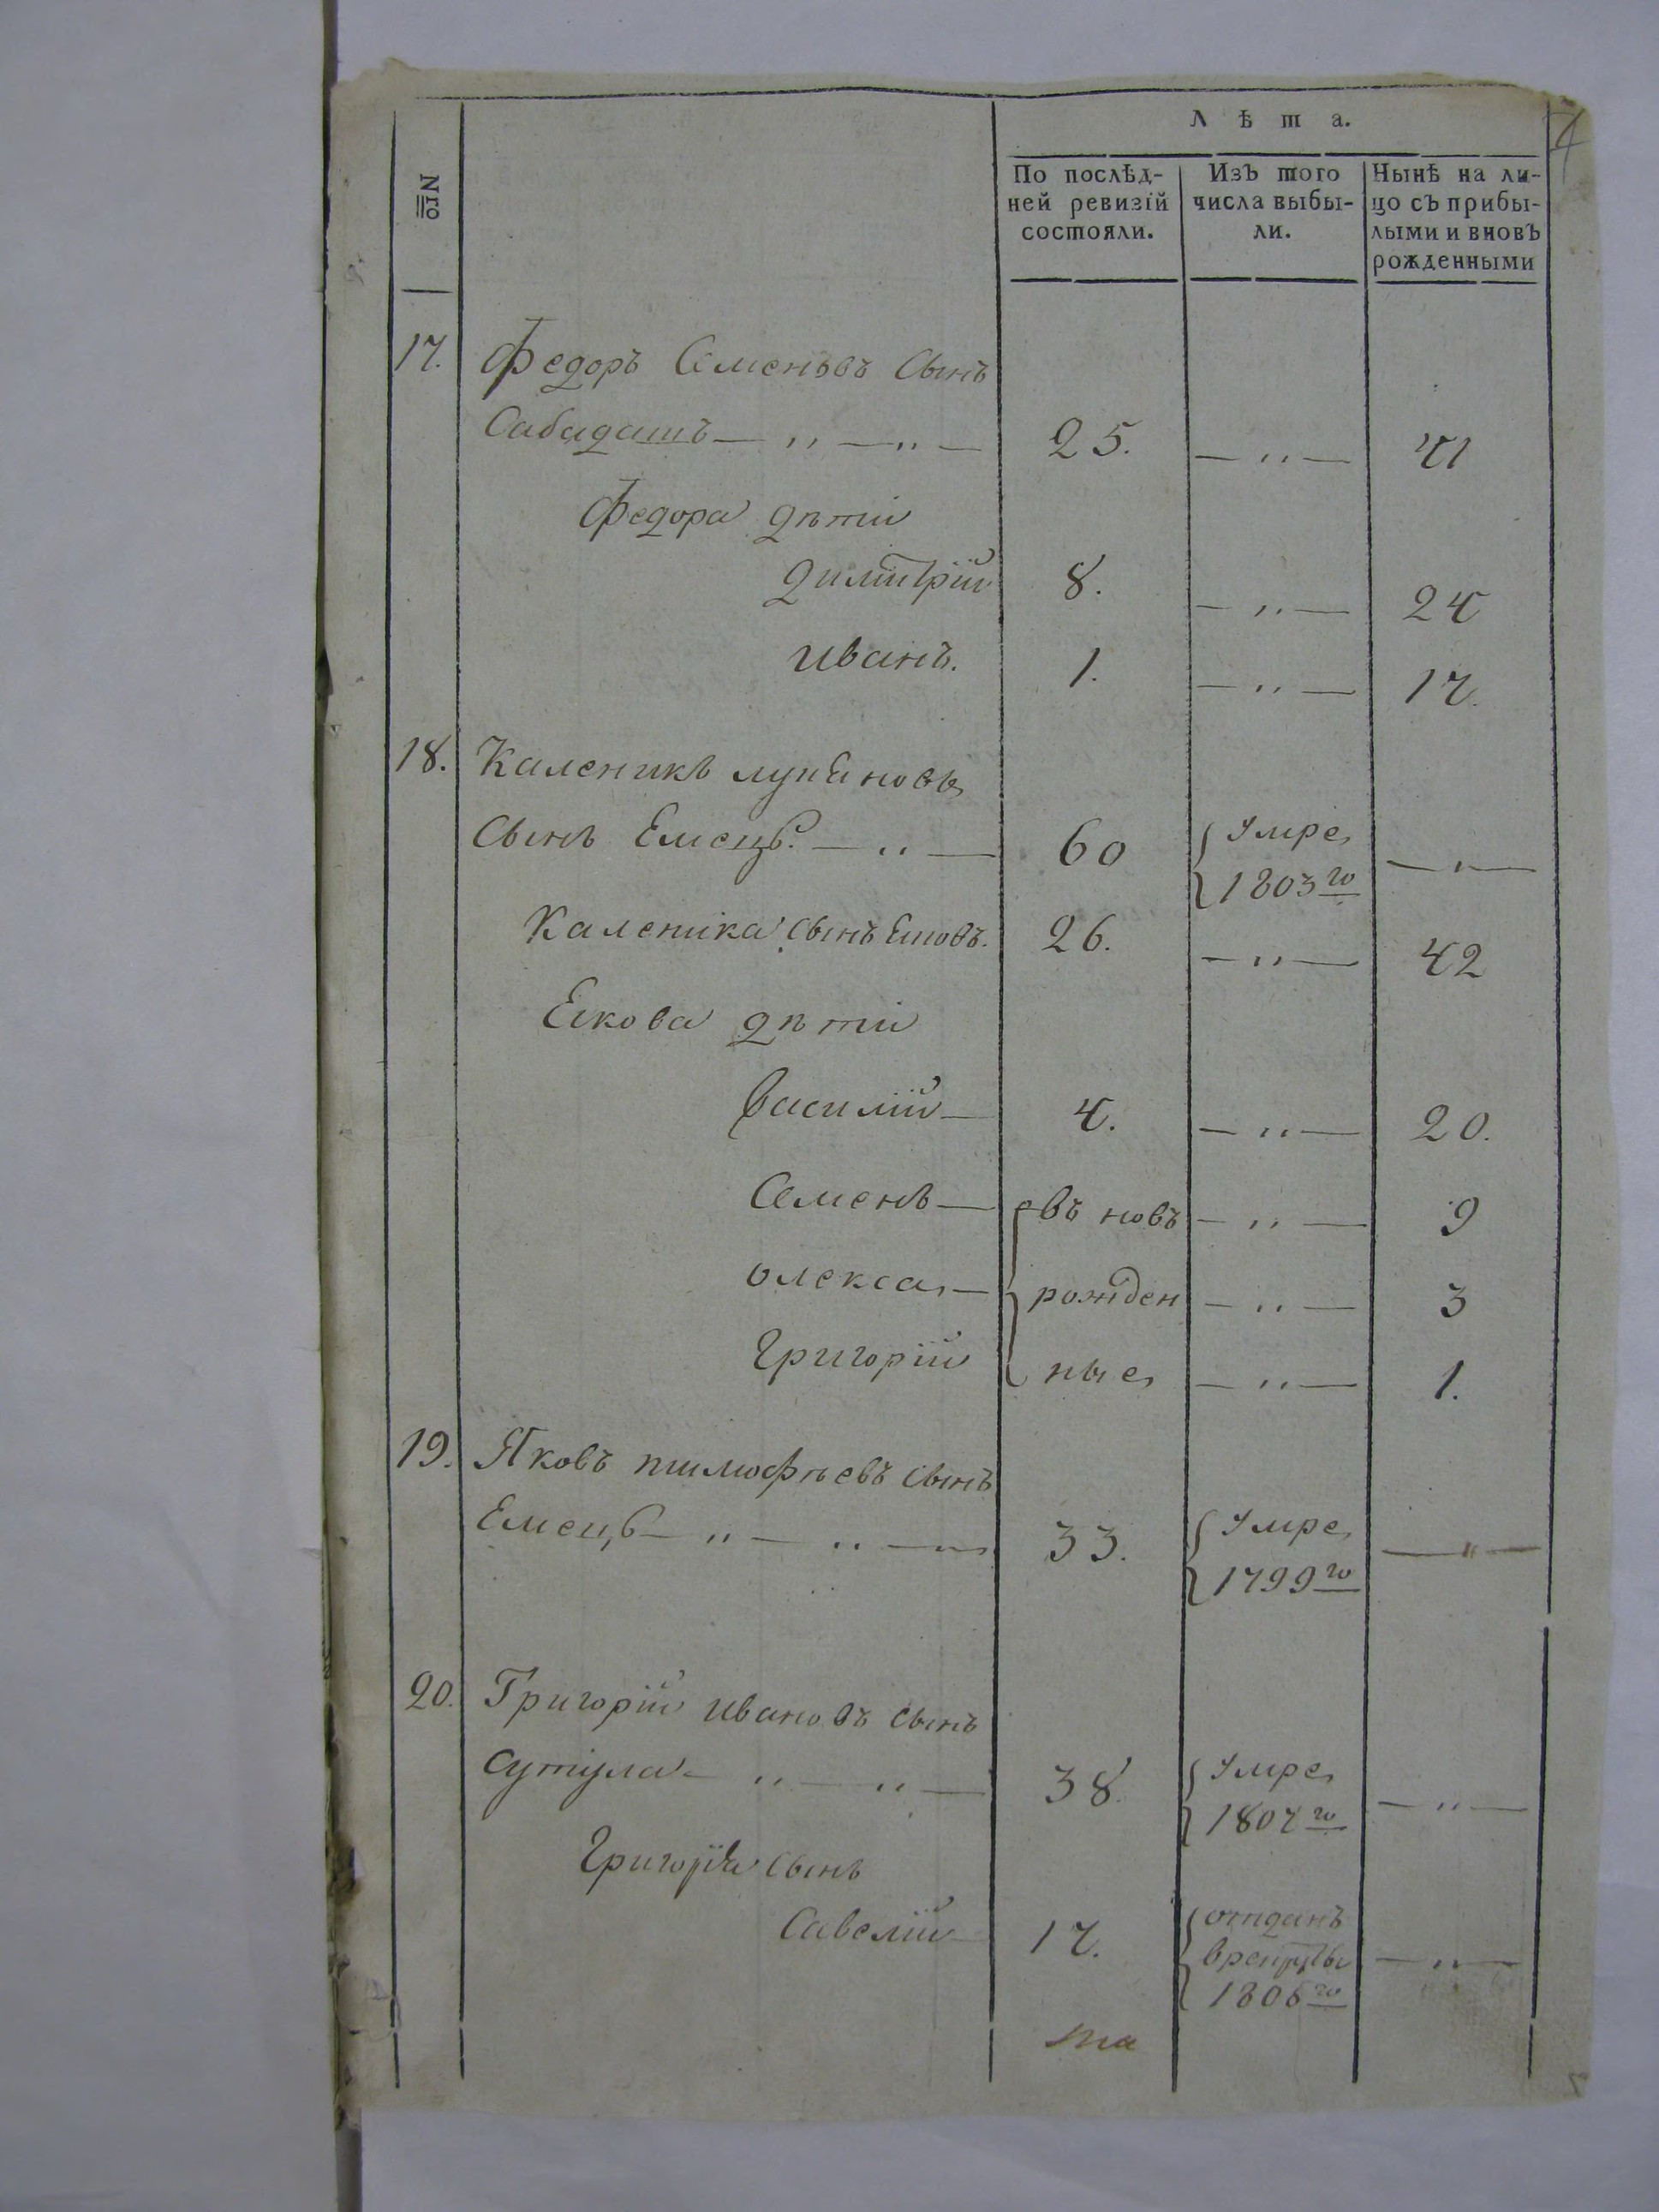 4
Лѣта.
Nro
По послѣд-
ней ревизій
состояли.
Изъ того
числа выбы-
ли.
Нынѣ на ли-
цо съ прибы-
лыми и вновъ
рожденными
17. Федоръ Семеновъ Сынъ
Сабадашъ — „ — „ — 25. — „ — 41
Федора дѣти
Димитрій 8. — „ — 24
Иванъ. 1. — „ — 17.
18. Каленикъ лупановъ
Сынъ Емецъ. — „ — 60 Умре — „ —
1803го
Каленика Сынъ 26. — „ — 42
дѣти
Василій — 4. — „ — 20.
Семенъ — въ новъ — „ — 9
олекса — рожден — „ — 3
Григорій ные — „ — 1.
19. Яковъ тимофѣевъ Сынъ
Емецъ — „ — „ — 33. Умре — „ —
1799го
20. Григорій Ивановъ Сынъ
Сутула — „ — „ — 38. Умре — „ —
1807го
Григорія Сынъ
Савелій 17. отданъ — „ —
врекруты
1806го